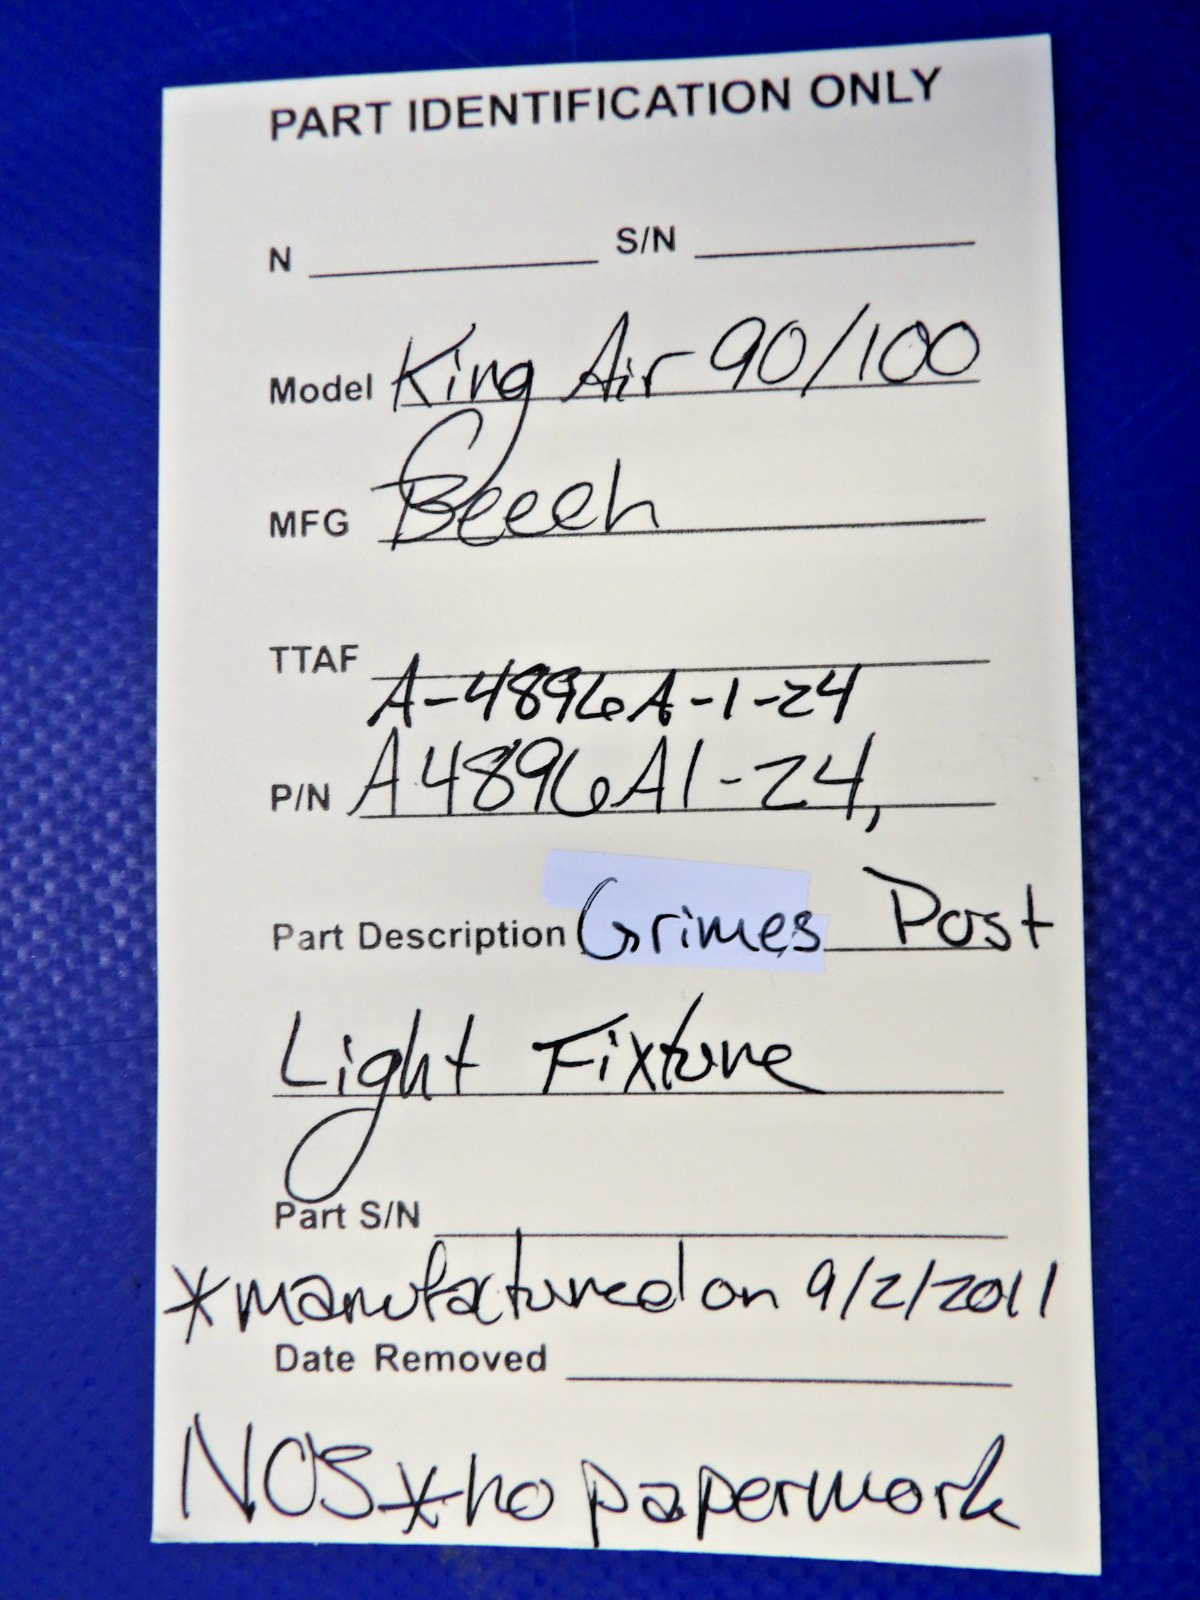 PART IDENTIFICATION ONLY
N S/N
Model King Air 90/100
MFG Beech
TTAF
A-4896A-1-24
P/N A4896A1-24,
Part Description Grimes Post
Light Fixture
Part S/N
*manufactured on 9/2/2011
Date Removed
NOS*no paperwork